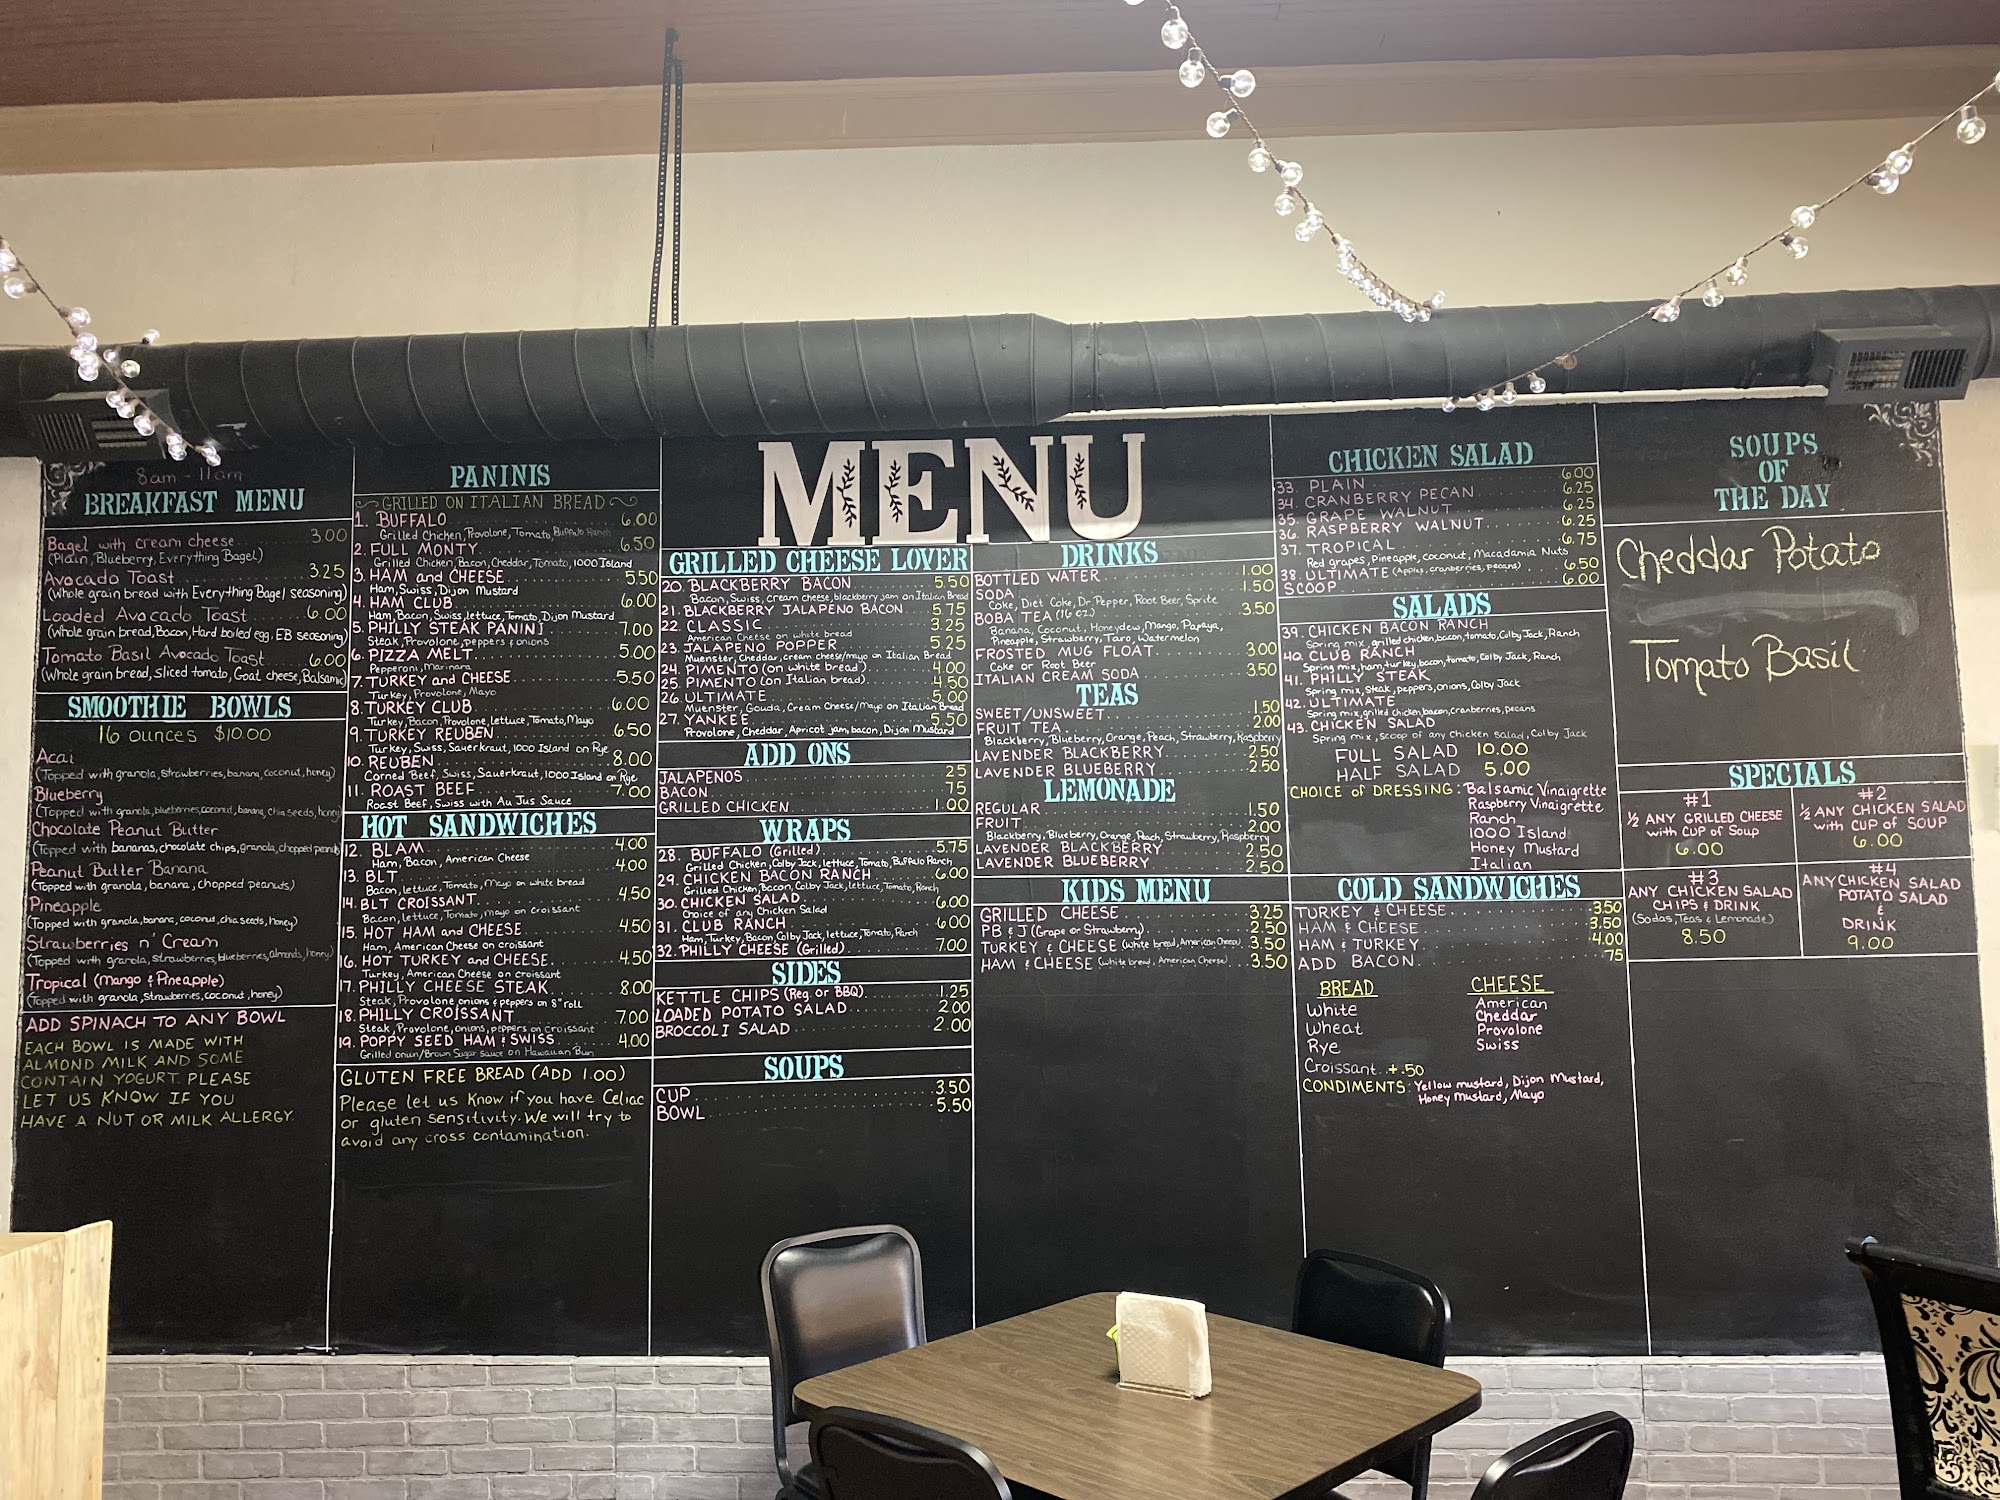 MENU
8am - 11am
BREAKFAST MENU
Bagel with cream cheese 3.00
(Plain, Blueberry, Everything Bagel)
Avocado Toast 3.25
(Whole grain bread with Everything Bagel seasoning)
Loaded Avocado Toast 6.00
(Whole grain bread, Bacon, Hard boiled egg, EB seasoning)
Tomato Basil Avocado Toast 6.00
(Whole grain bread, sliced tomato, Goat cheese, Balsamic)
SMOOTHIE BOWLS
16 ounces $10.00
Acai
(Topped with granola, strawberries, banana, coconut, honey)
Blueberry
(Topped with granola, blueberries, coconut, banana, chia seeds, honey)
Chocolate Peanut Butter
(Topped with bananas, chocolate chips, granola, chopped peanuts)
Peanut Butter Banana
(Topped with granola, banana, chopped peanuts)
Pineapple
(Topped with granola, banana, coconut, chia seeds, honey)
Strawberries n' Cream
(Topped with granola, strawberries, blueberries, almonds, honey)
Tropical (Mango & Pineapple)
(Topped with granola, strawberries, coconut, honey)
ADD SPINACH TO ANY BOWL
EACH BOWL IS MADE WITH
ALMOND MILK AND SOME
CONTAIN YOGURT. PLEASE
LET US KNOW IF YOU
HAVE A NUT OR MILK ALLERGY.
PANINIS
GRILLED ON ITALIAN BREAD
1. BUFFALO 6.00
Grilled Chicken, Provolone, Tomato, Buffalo Ranch
2. FULL MONTY 6.50
Grilled Chicken, Bacon, Cheddar, Tomato, 1000 Island
3. HAM and CHEESE 5.50
Ham, Swiss, Dijon Mustard
4. HAM CLUB 6.00
Ham, Bacon, Swiss, lettuce, Tomato, Dijon Mustard
5. PHILLY STEAK PANINI 7.00
Steak, Provolone, peppers & onions
6. PIZZA MELT 5.00
Pepperoni, Marinara
7. TURKEY and CHEESE 5.50
Turkey, Provolone, Mayo
8. TURKEY CLUB 6.00
Turkey, Bacon, Provolone, lettuce, Tomato, Mayo
9. TURKEY REUBEN 6.50
Turkey, Swiss, Sauerkraut, 1000 Island on Rye
10. REUBEN 8.00
Corned Beef, Swiss, Sauerkraut, 1000 Island on Rye
11. ROAST BEEF 7.00
Roast Beef, Swiss with Au Jus Sauce
HOT SANDWICHES
12. BLAM 4.00
Ham, Bacon, American Cheese
13. BLT 4.00
Bacon, lettuce, Tomato, Mayo on white bread
14. BLT CROISSANT 4.50
Bacon, lettuce, Tomato, mayo on croissant
15. HOT HAM and CHEESE 4.50
Ham, American Cheese on croissant
16. HOT TURKEY and CHEESE 4.50
Turkey, American Cheese on croissant
17. PHILLY CHEESE STEAK 8.00
Steak, Provolone onions & peppers on 8" roll
18. PHILLY CROISSANT 7.00
Steak, Provolone, onions, peppers on croissant
19. POPPY SEED HAM & SWISS 4.00
Grilled onion/Brown Sugar Sauce on Hawaiian Bun
GLUTEN FREE BREAD (ADD 1.00)
Please let us know if you have Celiac
or gluten sensitivity. We will try to
avoid any cross contamination.
GRILLED CHEESE LOVER
20. BLACKBERRY BACON 5.50
Bacon, Swiss, cream cheese, blackberry jam on Italian Bread
21. BLACKBERRY JALAPENO BACON 5.75
22. CLASSIC 3.25
American Cheese on white bread
23. JALAPENO POPPER 5.25
Muenster, Cheddar, cream cheese/mayo on Italian Bread
24. PIMENTO (on white bread) 4.00
25. PIMENTO (on Italian bread) 4.50
26. ULTIMATE 5.00
Muenster, Gouda, Cream Cheese/Mayo on Italian Bread
27. YANKEE 5.50
Provolone, Cheddar, Apricot jam, bacon, Dijon Mustard
ADD ONS
JALAPENOS .25
BACON .75
GRILLED CHICKEN 1.00
WRAPS
28. BUFFALO (Grilled) 5.75
Grilled Chicken, Colby Jack, lettuce, Tomato, Buffalo Ranch
29. CHICKEN BACON RANCH 6.00
Grilled Chicken, Bacon, Colby Jack, lettuce, Tomato, Ranch
30. CHICKEN SALAD 6.00
Choice of any Chicken Salad
31. CLUB RANCH 6.00
Ham, Turkey, Bacon, Colby Jack, lettuce, Tomato, Ranch
32. PHILLY CHEESE (Grilled) 7.00
SIDES
KETTLE CHIPS (Reg. or BBQ) 1.25
LOADED POTATO SALAD 2.00
BROCCOLI SALAD 2.00
SOUPS
CUP 3.50
BOWL 5.50
DRINKS
BOTTLED WATER 1.00
SODA 1.50
Coke, Diet Coke, Dr Pepper, Root Beer, Sprite
BOBA TEA (16 oz) 3.50
Banana, Coconut, Honeydew, Mango, Papaya,
Pineapple, Strawberry, Taro, Watermelon
FROSTED MUG FLOAT 3.00
Coke or Root Beer
ITALIAN CREAM SODA 3.50
TEAS
SWEET/UNSWEET 1.50
FRUIT TEA 2.00
Blackberry, Blueberry, Orange, Peach, Strawberry, Raspberry
LAVENDER BLACKBERRY 2.50
LAVENDER BLUEBERRY 2.50
LEMONADE
REGULAR 1.50
FRUIT 2.00
Blackberry, Blueberry, Orange, Peach, Strawberry, Raspberry
LAVENDER BLACKBERRY 2.50
LAVENDER BLUEBERRY 2.50
KIDS MENU
GRILLED CHEESE 3.25
PB & J (Grape or Strawberry) 2.50
TURKEY & CHEESE (white bread, American Cheese) 3.50
HAM & CHEESE (white bread, American Cheese) 3.50
CHICKEN SALAD
33. PLAIN 6.00
34. CRANBERRY PECAN 6.25
35. GRAPE WALNUT 6.25
36. RASPBERRY WALNUT 6.25
37. TROPICAL 6.75
Red grapes, Pineapple, coconut, Macadamia Nuts
38. ULTIMATE (Apples, cranberries, pecans) 6.50
SCOOP 6.00
SALADS
39. CHICKEN BACON RANCH
Spring mix, grilled chicken, bacon, tomato, Colby Jack, Ranch
40. CLUB RANCH
Spring mix, ham, turkey, bacon, tomato, Colby Jack, Ranch
41. PHILLY STEAK
Spring mix, steak, peppers, onions, Colby Jack
42. ULTIMATE
Spring mix, grilled chicken, bacon, cranberries, pecans
43. CHICKEN SALAD
Spring mix, scoop of any chicken salad, Colby Jack
FULL SALAD 10.00
HALF SALAD 5.00
CHOICE OF DRESSING: Balsamic Vinaigrette
Raspberry Vinaigrette
Ranch
1000 Island
Honey Mustard
Italian
COLD SANDWICHES
TURKEY & CHEESE 3.50
HAM & CHEESE 3.50
HAM & TURKEY 4.00
ADD BACON .75
BREAD
White
Wheat
Rye
Croissant +.50
CHEESE
American
Cheddar
Provolone
Swiss
CONDIMENTS: Yellow mustard, Dijon Mustard,
Honey mustard, Mayo
SOUPS
OF
THE DAY
Cheddar Potato
Tomato Basil
SPECIALS
#1
½ ANY GRILLED CHEESE
with CUP of Soup
6.00
#2
½ ANY CHICKEN SALAD
with CUP of SOUP
6.00
#3
ANY CHICKEN SALAD
CHIPS & DRINK
(Sodas, Teas & Lemonade)
8.50
#4
ANY CHICKEN SALAD
POTATO SALAD
&
DRINK
9.00